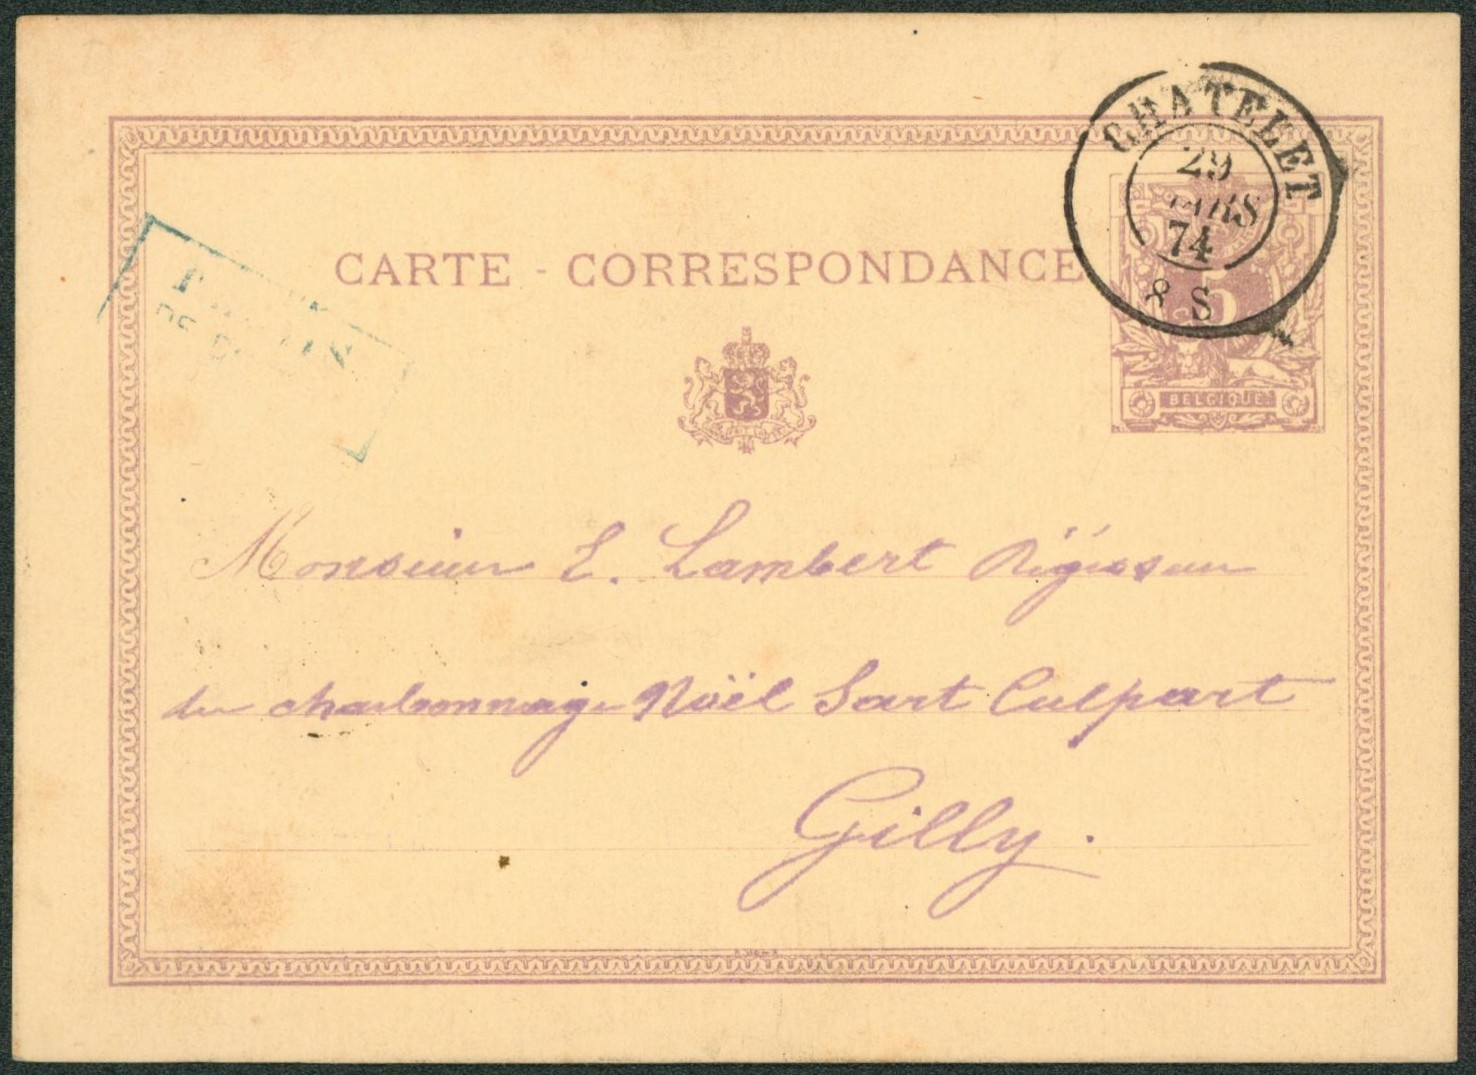 CHATELET
29
MARS
74
8 S
CARTE - CORRESPONDANCE
5
BELGIQUE
Monsieur E. Lambert Régisseur
du charbonnage Noël Sart Culpart
Gilly.